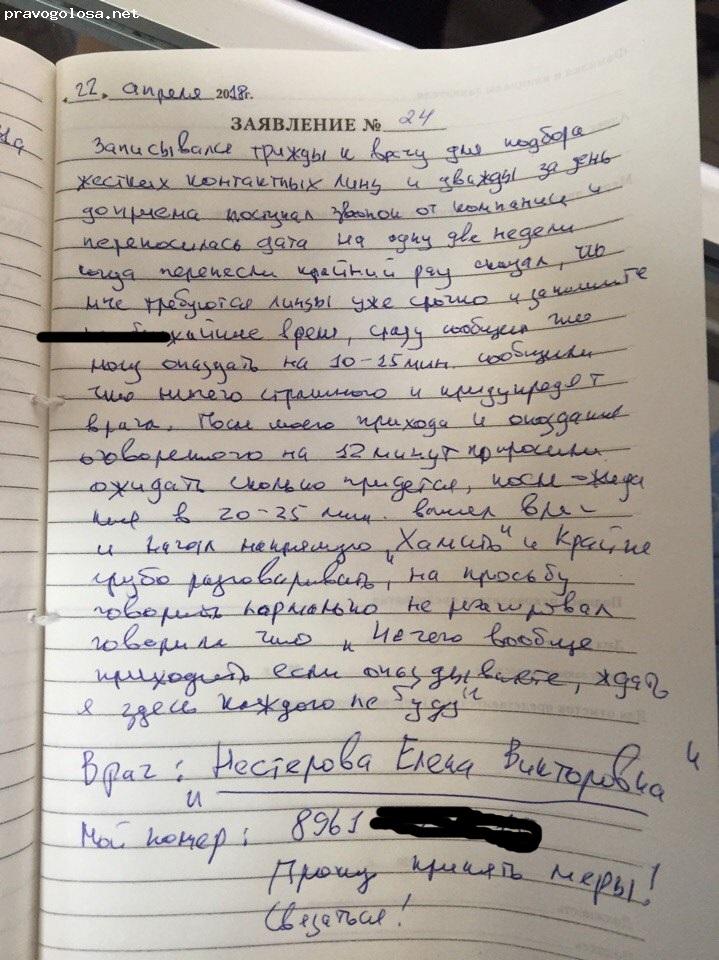 pravogolosa.net
22. апреля 2018г.
ЗАЯВЛЕНИЕ № 24
Записывался трижды к врачу для подбора
жестких контактных линз и дважды за день
до приема поступал звонок от компании и
переносилась дата на одну две недели
когда перенесли крайний раз сказал, что
мне требуются линзы уже срочно и запишите
время, сразу сообщил что
могу опаздать на 10-15мин. сообщили
что ничего страшного и предупредят
врача. После моего прихода и опоздание
оговоренного на 12 минут попросили
ожидать сколько придется, после ожида
ния в 20-25 мин. вышел врач
и начал напрямую "Хамить" и Крайне
грубо разговаривать", на просьбу
говорить нормально не реагировал
говорила что "Нечего вообще
приходить если опаздываете, ждать
я здесь каждого не буду"
Врач: Нестерова Елена Викторовна
Мой номер: 8961
Прошу принять меры!
Связаться!